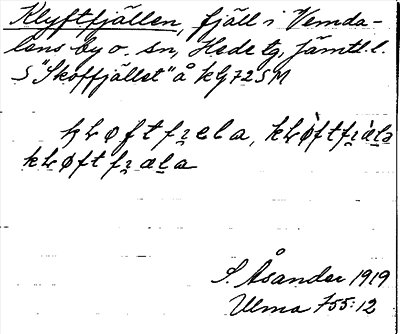 Klyftfjällen, fjäll i Vemda-
lens by o. sn, Hede tg, Jämtl. l.
S "Skoffjället" å kbl 72 SM
kløftfi̯ela, kløftfi̯æla
kløftfi̯æla
S. Åsander 1919
Ulma 755:12